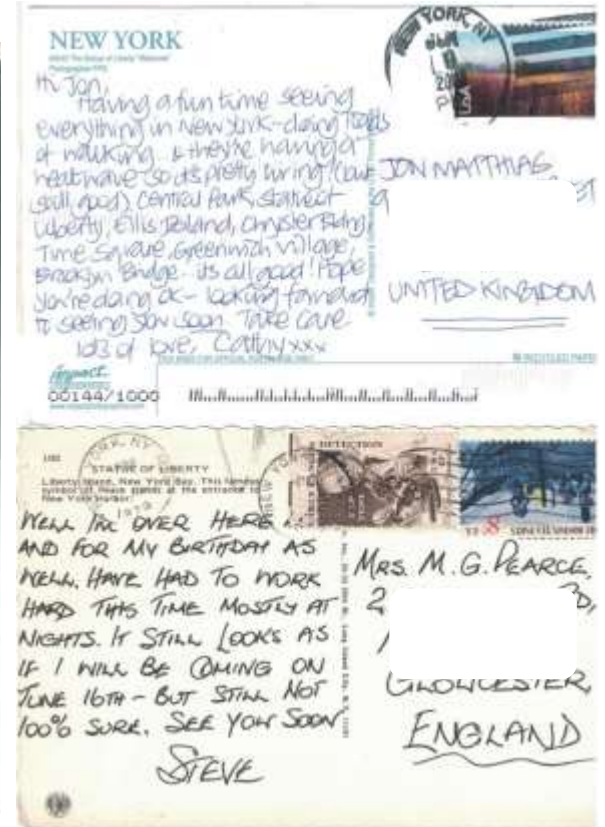 NEW YORK
NEW YORK, NY
USA
Hi Jon,
Having a fun time seeing
everything in New York - doing loads
of walking & they're having a
heatwave so it's pretty tiring! (but
still good) Central Park, Statue of
Liberty, Ellis Island, Chrysler Bldng,
Time Square, Greenwich Village,
Brooklyn Bridge - its all good! Hope
you're doing ok - looking forward
to seeing you soon. Take care
lots of love, Cathy xxx
JON MATTHIAS,
UNITED KINGDOM
RECYCLED PAPER
impact
00144/1000
STATUE OF LIBERTY
Liberty Island, New York Bay. This famous
symbol of Peace stands at the entrance to
New York harbor.
1973
DETECTION
8c
WELL I'M OVER HERE
AND FOR MY BIRTHDAY AS
WELL. HAVE HAD TO WORK
HARD THIS TIME MOSTLY AT
NIGHTS. IT STILL LOOKS AS
IF I WILL BE COMING ON
JUNE 16TH - BUT STILL NOT
100% SURE. SEE YOU SOON
STEVE
MRS. M. G. PEARCE,
2
GLOUCESTER,
ENGLAND